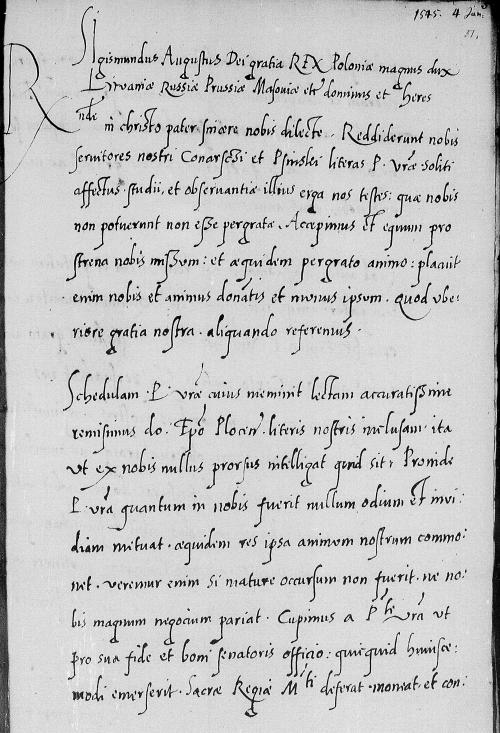 1545. 4 Jan:
Sigismundus Augustus Dei gratia REX Poloniæ magnus dux
Litvaniæ Russiæ Prussiæ Masoviæ etc dominus et heres
Rnde in christo pater sincere nobis dilecte. Reddiderunt nobis
servitores nostri Conarsczi et literas P. vræ soliti
affectus studii, et observantiæ illius erga nos testes: quæ nobis
non potuerunt non esse pergratæ. Accepimus et equum pro
strena nobis missum: et æquidem pergrato animo: placuit
enim nobis et animus donãtis et munus ipsum. quod vbe:
riore gratia nostra. aliquando referemus.
Schedulam. P. vræ cuius meminit lectam accuratissime
remisimus do. Epo Plocen. literis nostris inclusam. ita
vt ex nobis nullus prorsus intelligat quid sit. Proinde
P. vrã quantum in nobis fuerit nullum odium et invi:
diam metuat. æquidem res ipsa animum nostrum commo:
net. veremur enim si mature occursum non fuerit. ne no:
bis magnum negocium pariat. Cupimus a Pte vrã vt
pro sua fide et boni senatoris officio: quicquid huiusce:
modi emerserit. Sacræ Regiæ Mti deferat moneat. et con: